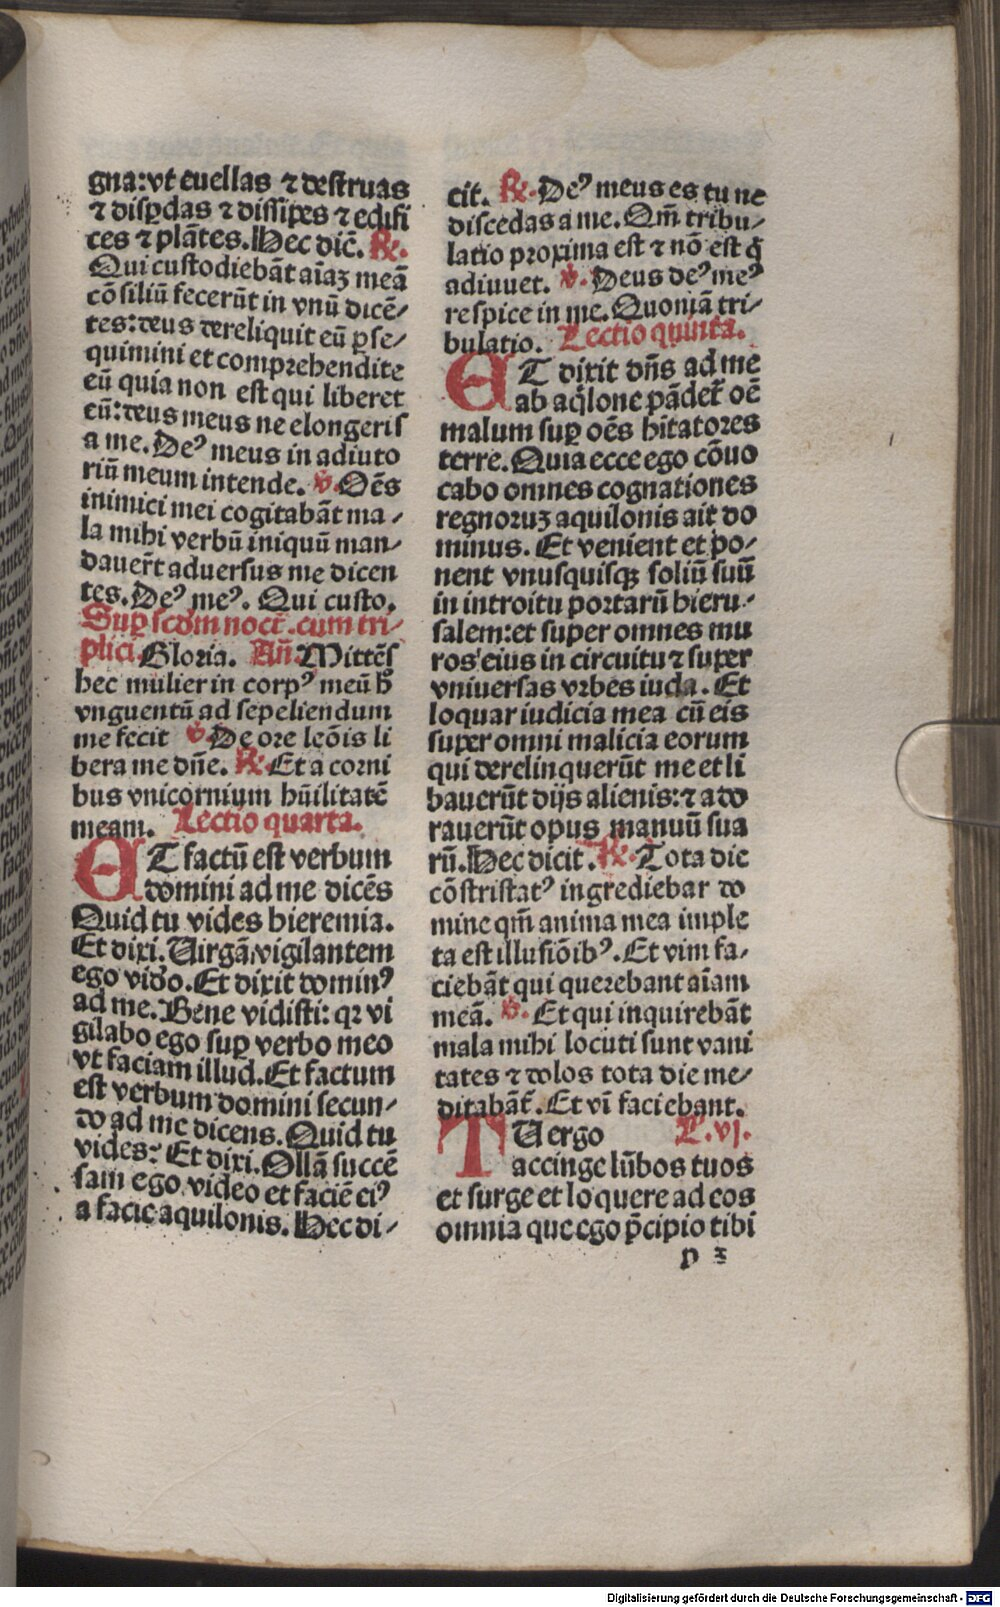 gna: vt euellas ⁊ destruas
⁊ disꝑdas ⁊ dissipes ⁊ edifi
ces ⁊ plātes. Hec dic̄. ℟.
Qui custodiebāt aīaꝫ meā
cōsiliū fecerūt in vnū dicē-
tes: deus dereliquit eū ꝑse-
quimini et comprehendite
eū quia non est qui liberet
eū: deus meus ne elongeris
a me. Deꝰ meus in adiuto
riū meum intende. ℣. Oēs
inimici mei cogitabāt ma-
la mihi verbū iniquū man-
dauer̄t aduersus me dicen
tes. Deꝰ meꝰ. Qui custo.
Suꝑ scdm noct̄. cum tri-
plici. Gloria. An̄. Mittēs
hec mulier in corpꝰ meū h̄
vnguentū ad sepeliendum
me fecit ℣. De ore leōis li
bera me dn̄e. ℟. Et a corni
bus vnicornium hūilitatē
meam. Lectio quarta.
ET factū est verbum
domini ad me dicēs
Quid tu vides hieremia.
Et dixi. Uirgā vigilantem
ego video. Et dixit dominꝰ
ad me. Bene vidisti: qꝛ vi
gilabo ego suꝑ verbo meo
vt faciam illud. Et factum
est verbum domini secun-
do ad me dicens. Quid tu
vides: Et dixi. Ollā succē
sam ego video et faciē eiꝰ
a facie aquilonis. Hec di-
cit. ℟. Deꝰ meus es tu ne
discedas a me. Qm̄ tribu-
latio proxima est ⁊ nō est q̄
adiuuet. ℣. Deus deꝰ meꝰ
respice in me. Quoniā tri-
bulatio. Lectio quinta.
ET dixit dn̄s ad me
ab aq̄lone pādet̄ oē
malum suꝑ oēs hītatores
terre. Quia ecce ego cōuo
cabo omnes cognationes
regnoruꝫ aquilonis ait do
minus. Et venient et po-
nent vnusquisqꝫ soliū suū
in introitu portarū hieru-
salem: et super omnes mu
ros eius in circuitu ⁊ super
vniuersas vrbes iuda. Et
loquar iudicia mea cū eis
super omni malicia eorum
qui derelinquerūt me et li
bauerūt dijs alienis: ⁊ ado
rauerūt opus manuū sua
rū. Hec dicit. ℟. Tota die
cōstristatꝰ ingrediebar do
mine qm̄ anima mea imple
ta est illusiōibꝰ. Et vim fa-
ciebāt qui querebant aīam
meā. ℣. Et qui inquirebāt
mala mihi locuti sunt vani
tates ⁊ dolos tota die me-
ditabāt̄. Et vī faciebant.
TU ergo L. vj.
accinge lūbos tuos
et surge et loquere ad eos
omnia que ego p̄cipio tibi
p 3
Digitalisierung gefördert durch die Deutsche Forschungsgemeinschaft - DFG